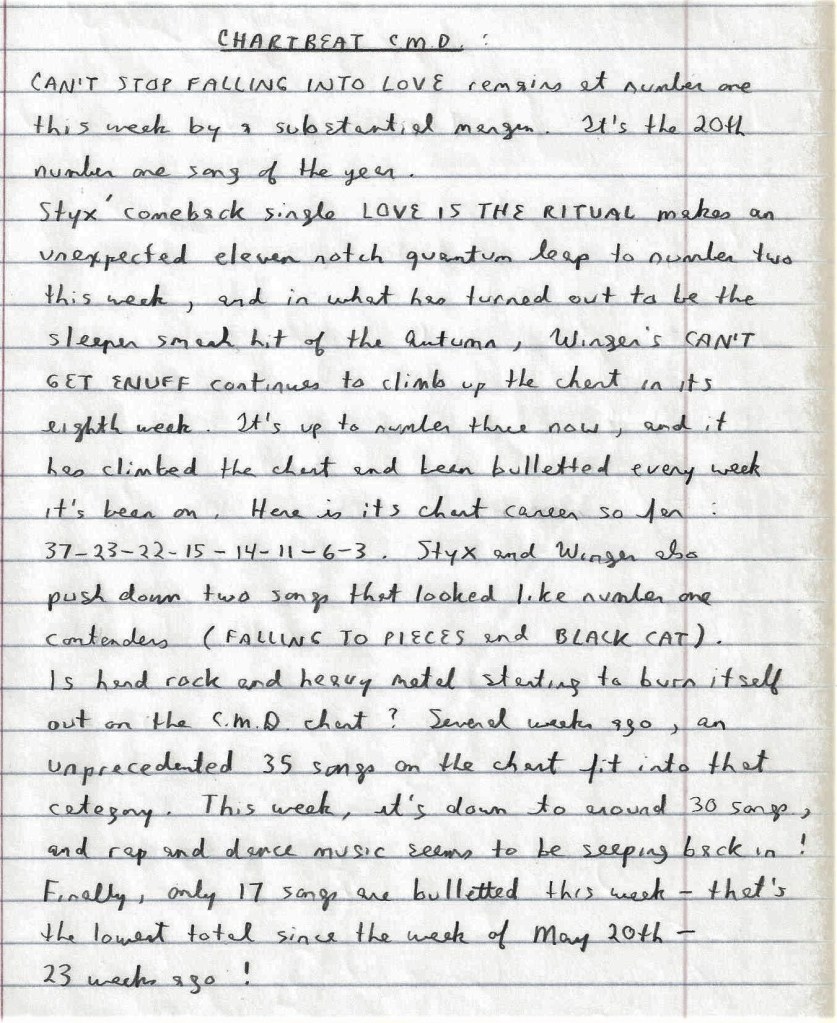 CHARTBEAT C.M.D. :
CAN'T STOP FALLING INTO LOVE remains at number one
this week by a substantial margin. It's the 20th
number one song of the year.
Styx' comeback single LOVE IS THE RITUAL makes an
unexpected eleven notch quantum leap to number two
this week, and in what has turned out to be the
sleeper smash hit of the Autumn, Winger's CAN'T
GET ENUFF continues to climb up the chart in its
eighth week. It's up to number three now, and it
has climbed the chart and been bulletted every week
it's been on. Here is its chart career so far :
37-23-22-15-14-11-6-3. Styx and Winger also
push down two songs that looked like number one
contenders (FALLING TO PIECES and BLACK CAT).
Is hard rock and heavy metal starting to burn itself
out on the C.M.D. chart? Several weeks ago, an
unprecedented 35 songs on the chart fit into that
category. This week, it's down to around 30 songs,
and rap and dance music seems to be seeping back in!
Finally, only 17 songs are bulletted this week - that's
the lowest total since the week of May 20th -
23 weeks ago!